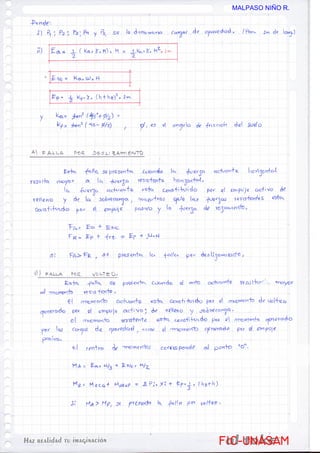 MALPASO NIÑO R.
Donde:
i) P1; P2; P3; P4 y P5 se le denomina cargas de gravedad. (1m de long)
ii) Ea = 1/2 (Ka × γ × H) × H = 1/2 Ka × γ × H² × 1m
* Esc = Ka × ω × H
Ep = 1/2 Kp × γ × (h+hs)² × 1m
y Ka =
Kp = ø, es el ángulo de fricción del suelo
A) FALLA POR DESLIZAMIENTO
Esta falla se presenta cuando la fuerza actuante horizontal
resulta mayor a la fuerza resistente horizontal.
la fuerza actuante esta constituida por el empuje activo de
relleno y de la sobrecarga, mientras que las fuerzas resistentes estan
constituido por el empuje pasivo y la fuerza de rozamiento.
FA = Ea + Esc
FR = Ep + fre = Ep + μN
si: FA > FR, se presenta la falla por deslizamiento.
B) FALLA POR VOLTEO.
Esta falla se presenta cuando el mto actuante resulta mayor
al momento resistente.
el momento actuante esta constituido por el momento de volteo
generado por el empuje activo; de relleno y sobrecarga.
el momento resistente esta constituido por el momento generado
por las cargas de gravedad, mas el momento generado por el empuje
pasivo.
el centro de momentos corresponde al punto "O".
MA = Ea × H/3 + Esc × H/2
Si MA > MR, se presenta la falla por volteo.
Haz realidad tu imaginación
FIC-UNASAM